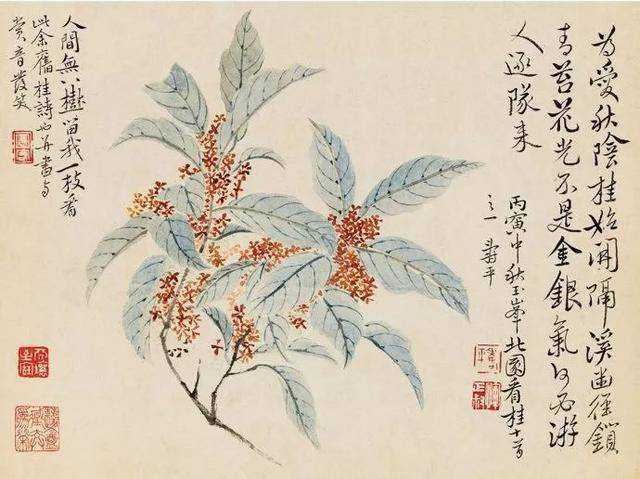 為愛秋陰桂始開隔溪幽徑鎖
青苔花光不是金銀氣何必游
人逐隊来
丙寅中秋玉峯北園看桂十首
之一 壽平
人間無八樹留我一枝看
此余舊桂詩也并書与
賞音發笑